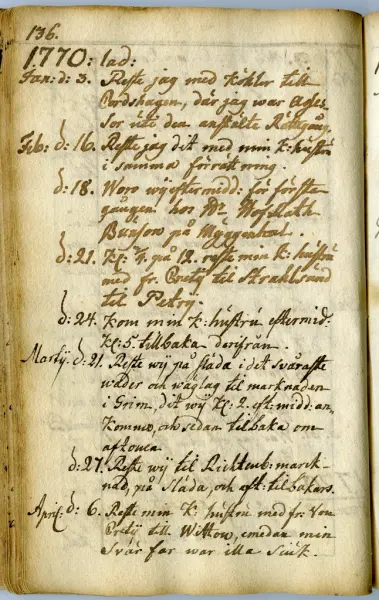 136.
1770: lad:
Jan: d: 3. Reste jag med Köhler till
Cordshagen, där jag war Asses
sor uti den anstälte Rättgång.
Feb: d: 16. Reste jag dit med min K: hustru
i samma förrättning.
d: 18. Woro wÿ eftermidd: för första
gången hos Hofrath
på
d: 21. Kl: 1/4. på 12. reste min K: hustru
med fr. til Strahlsund
til Petrÿ.
d: 24. Kom min K: hustru eftermid:
Kl: 5. tillbaka derifrån.
Martij d: 21. Reste wÿ på släda i det swåraste
wäder och wäglag til marknaden
i Grim, dit wÿ Kl: 2. eft: midd: an,
kommo, och sedan tilbaka om
aftonen
d: 27. Reste wÿ til Richtenb: mark-
nad, på släda, och eft: tilbakars.
April: d: 6. Reste min K: hustru med fr: von
till Wittow, emedan min
Swär far war illa siuk.